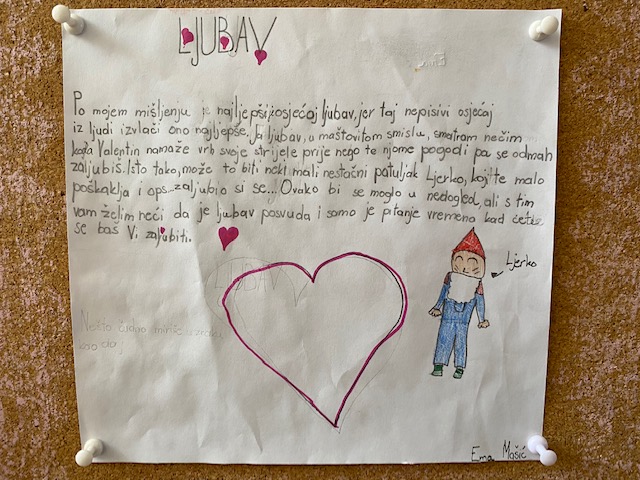 LJUBAV
Po mojem mišljenju je najljepši osjećaj ljubav, jer taj nepisivi osjećaj
iz ljudi izvlači ono najljepše. Ja ljubav, u maštovitom smislu, smatram nečim
kada Valentin namaže vrh svoje strijele prije nego te njome pogodi pa se odmah
zaljubiš. Isto tako, može to biti neki mali nestačni patuljak Ljerko, koji te malo
poškaklja i ops...zaljubio si se... Ovako bi se moglo u nedogled, ali s tim
vam želim reći da je ljubav posvuda i samo je pitanje vremena kad ćete
se baš Vi zaljubiti.
LJUBAV
Ljerko
Nešto čudno miriše u zraku
kao da
Ema Mašić